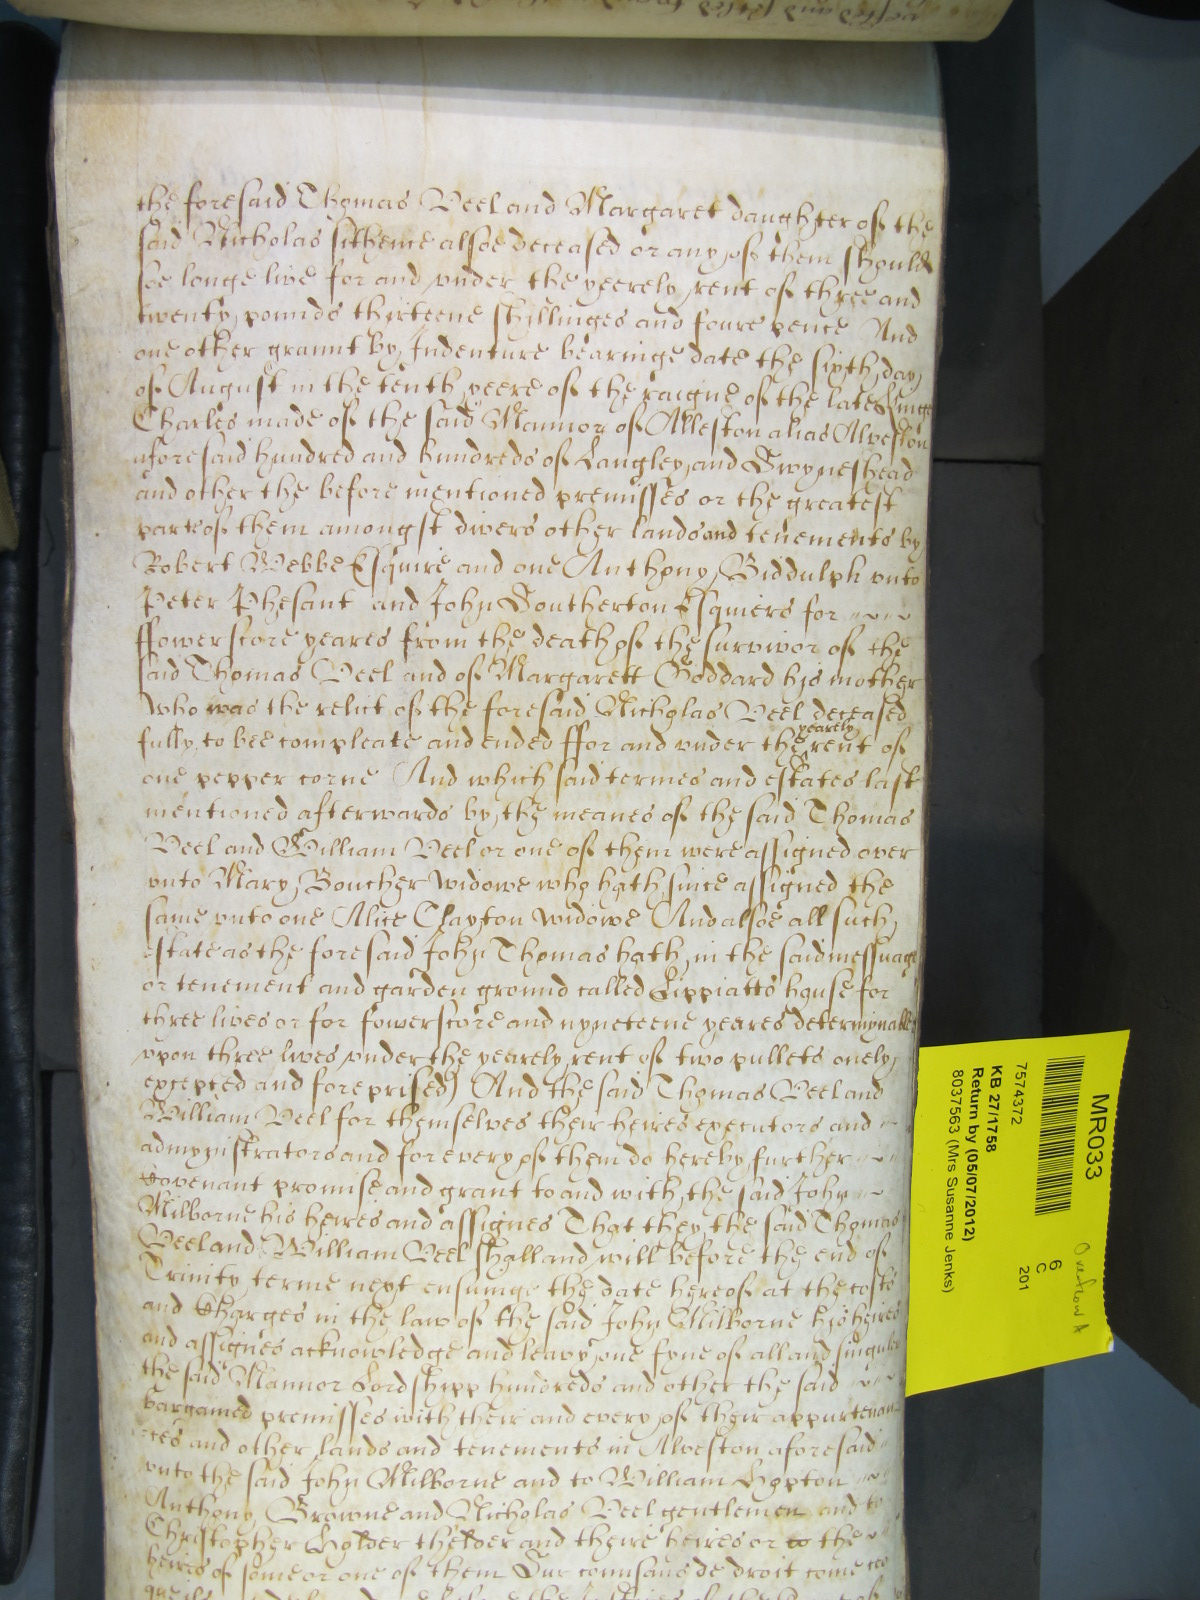 the foresaid Thomas Veel and Margaret daughter of the
said Nicholas sithence alsoe deceased or any of them should
soe longe live for and under the yeerely rent of three and
twenty pounds thirteene shillinges and foure pence And
one other graunt by Indenture bearinge date the sixth day
of August in the tenth yeere of the raigne of the late Kinge
Charles made of the said Mannor of Alleston alias Alveston
aforesaid hundred and hundreds of Langley and Swyneshead
and other the before mentioned premisses or the greatest
parte of them amongst divers other lands and tenements by
Robert Webbe Esquire and one Anthony Biddulph unto
Peter Phesant and John Southerton Esquiers for
ffowerscore yeares from the death of the survivor of the
said Thomas Veel and of Margarett Goddard his mother
who was the relict of the foresaid Nicholas Veel deceased
fully to bee compleate and ended ffor and under the yearely rent of
one pepper corne And which said termes and estates last
mentioned afterwards by the meanes of the said Thomas
Veel and William Veel or one of them were assigned over
unto Mary Boucher widowe who hath since assigned the
same unto one Alice Clayton widowe And alsoe all such
estate as the foresaid John Thomas hath in the said messuage
or tenement and garden ground called Lippiatts house for
three lives or for fowerscore and nyneteene yeares determynable
upon three lives under the yearely rent of two pullets onely
excepted and foreprised) And the said Thomas Veel and
William Veel for themselves their heires executors and
admynistrators and for every of them do hereby further
covenant promise and grant to and with the said John
Milborne his heires and assignes That they the said Thomas
Veel and William Veel shall and will before the end of
Trinity terme next ensuinge the date hereof at the costs
and Charges in the law of the said John Milborne his heires
and assignes acknowledge and leavy one fyne of all and singular
the said Mannor Lordshipp hundreds and other the said
bargained premisses with their and every of their appurtenan
ces and other lands and tenements in Alveston aforesaid
unto the said John Milborne and to William Hopton
Anthony Browne and Nicholas Veel gentlemen and to
Christopher Holder thelder and theire heires or to the
heires of some or one of them Sur conusans de droit come ceo
MR033
7574372
KB 27/1758
Return by (05/07/2012)
8037563 (Mrs Susanne Jenks)
6
C
201